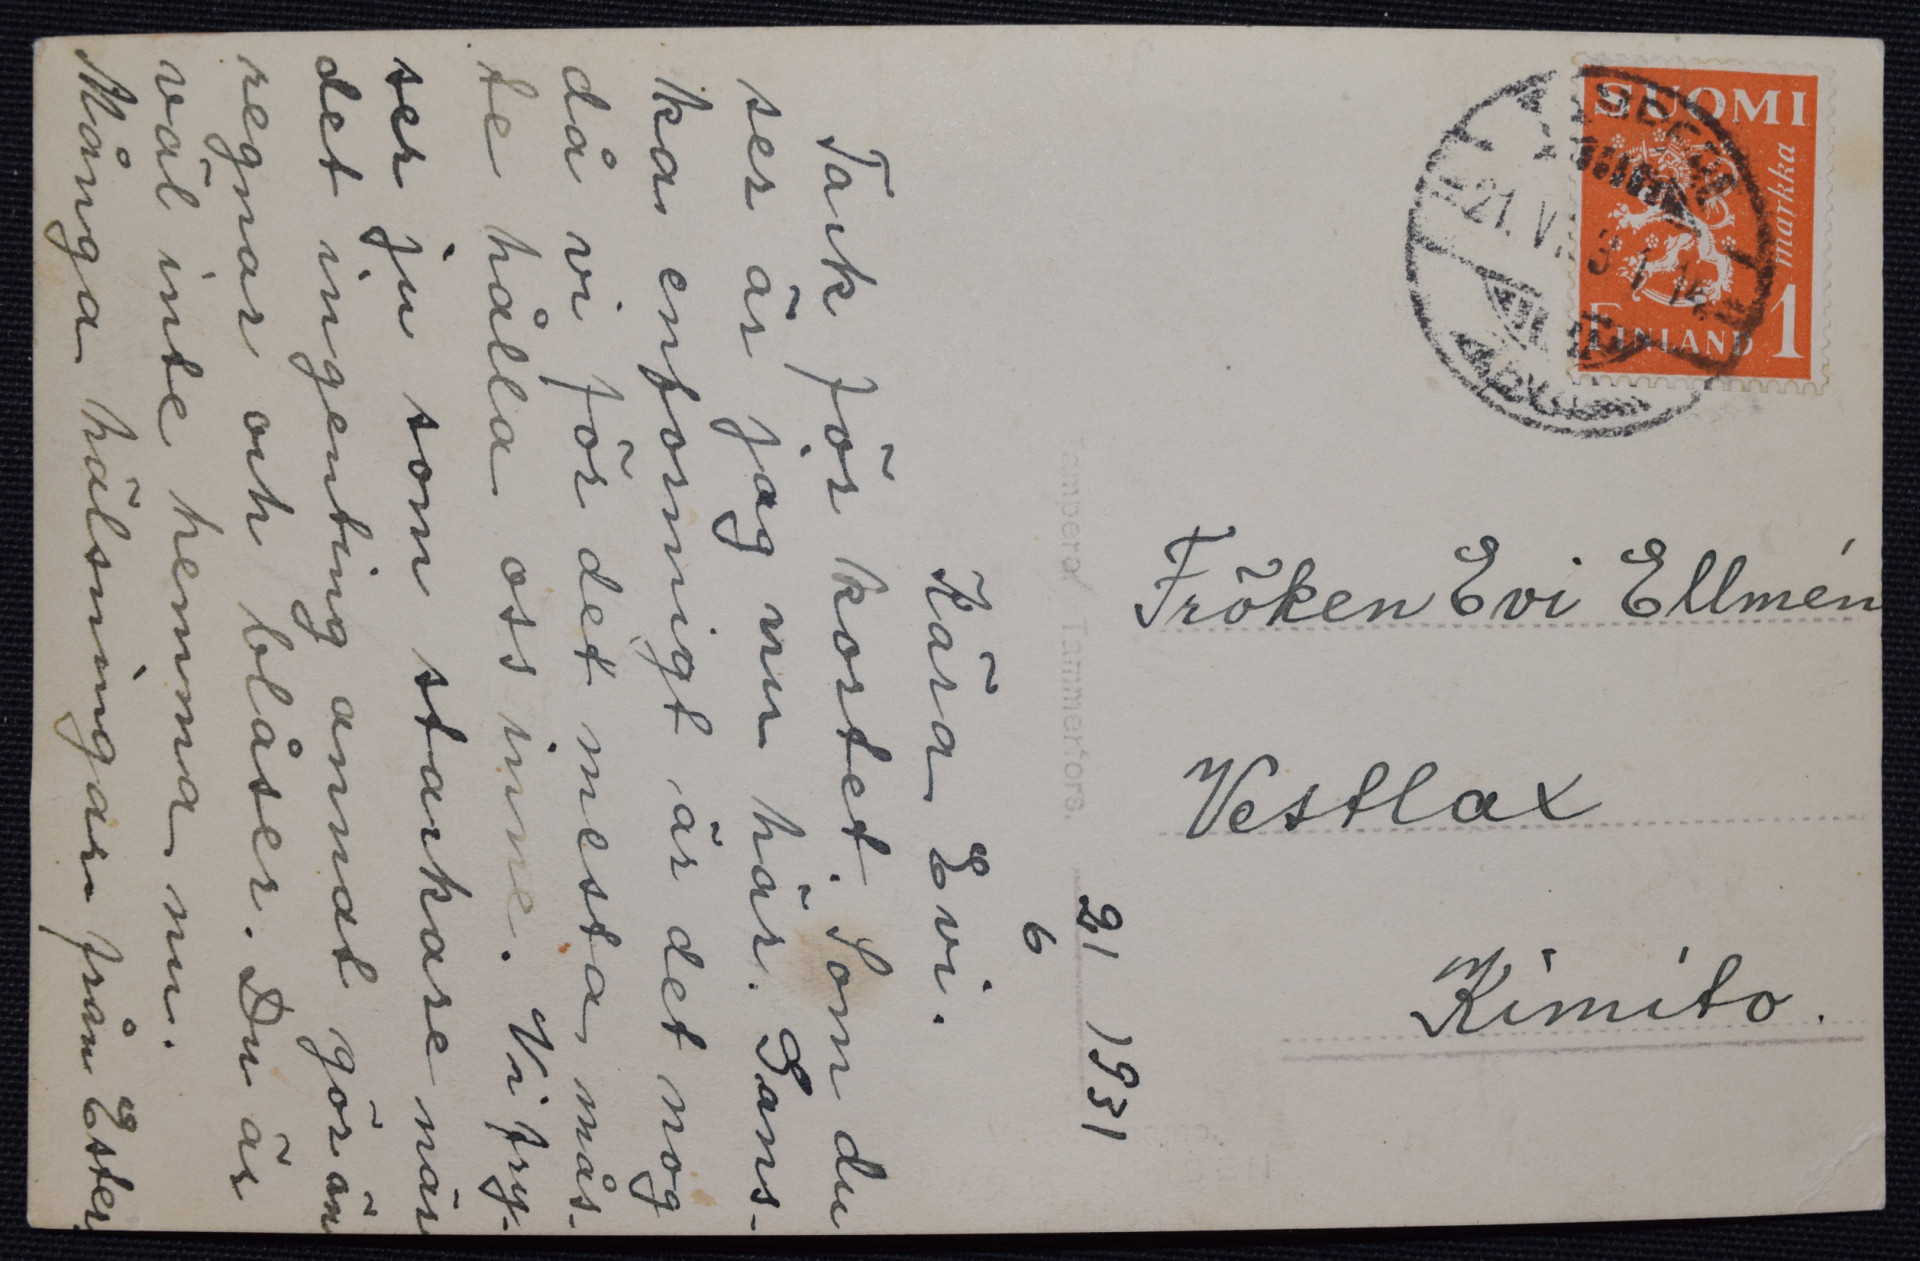 21 1931
6
Kära Evi.
Tack för kortet. Som du
ser är jag nu här. Gans-
ka enformigt är det nog
då vi för det mesta mås-
te hålla oss inne. Vi fry-
ser ju som starkare när
det ingenting annat gör än
regnar och blåser. Du är
väl inte hemma nu.
Många hälsningar från Ester.
Tampere Tammerfors.
SUOMI
markka
FINLAND 1
21.VI.31.14
Fröken Evi Ellmén
Vestlax
Kimito.